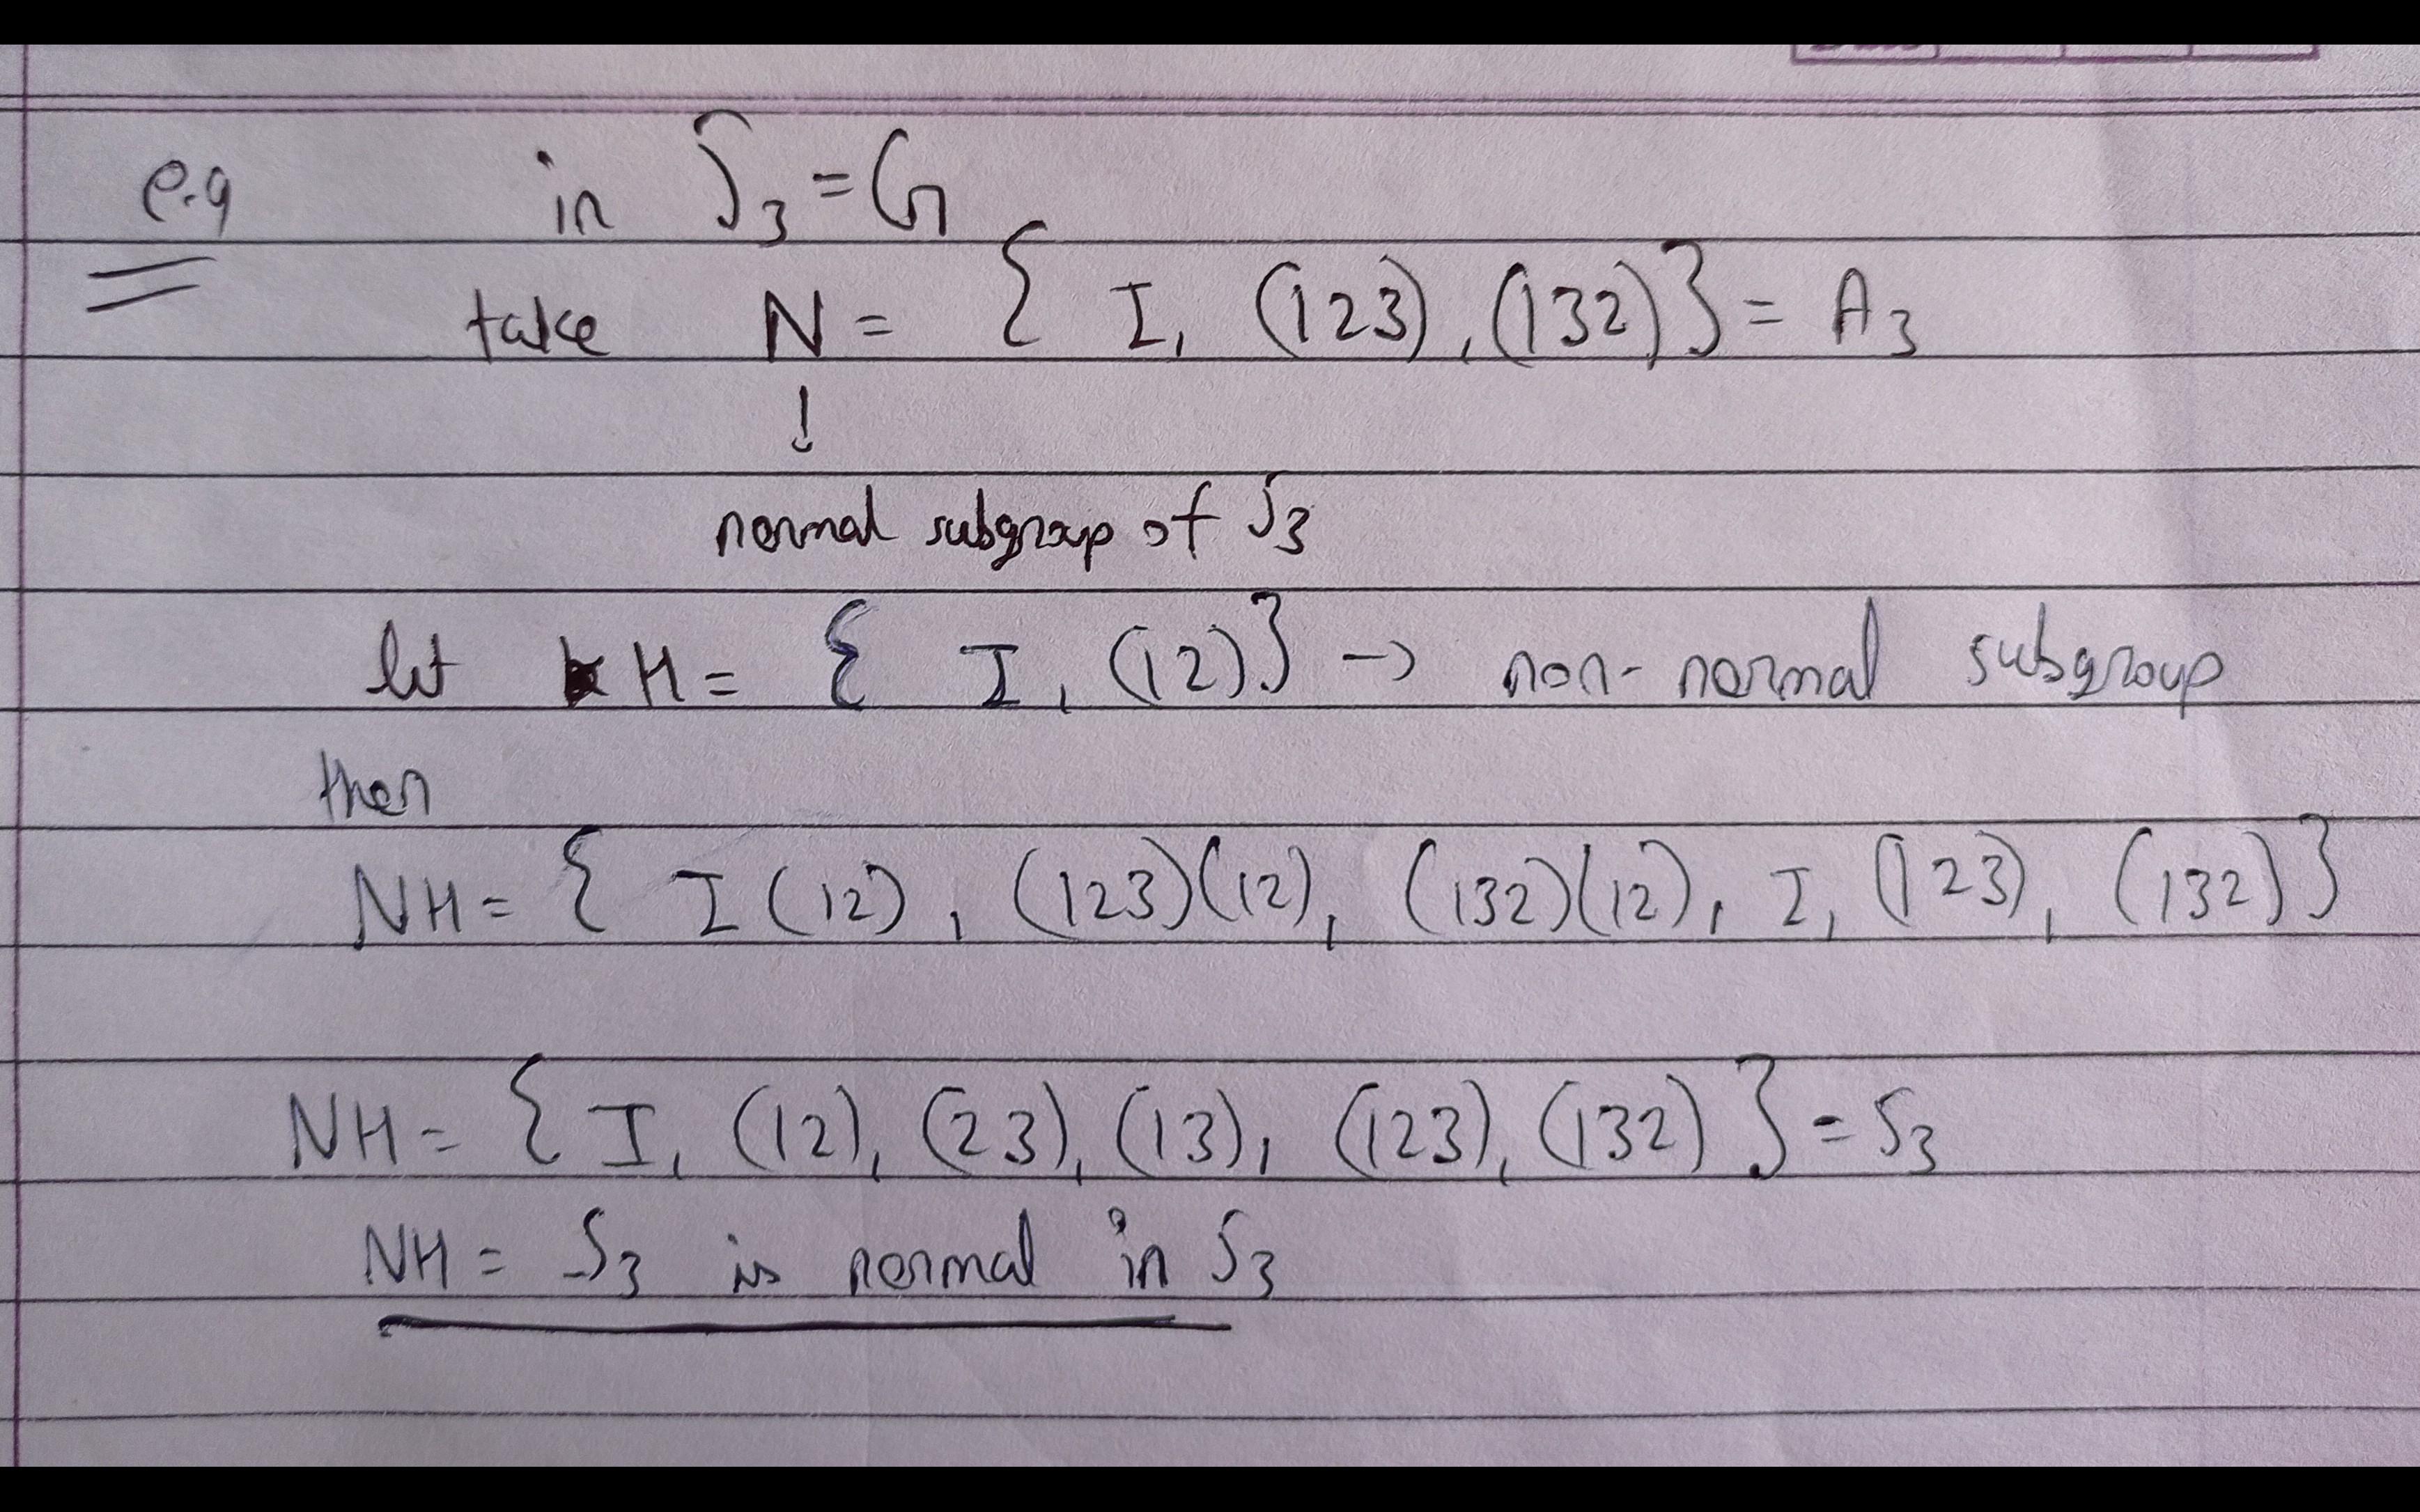 e.g in S₃ = G
take N = { I, (123), (132)} = A₃
↓
normal subgroup of S₃
let H = { I, (12)} → non-normal subgroup
then
NH = { I(12), (123)(12), (132)(12), I, (123), (132)}
NH = { I, (12), (23), (13), (123), (132) } = S₃
NH = S₃ is normal in S₃